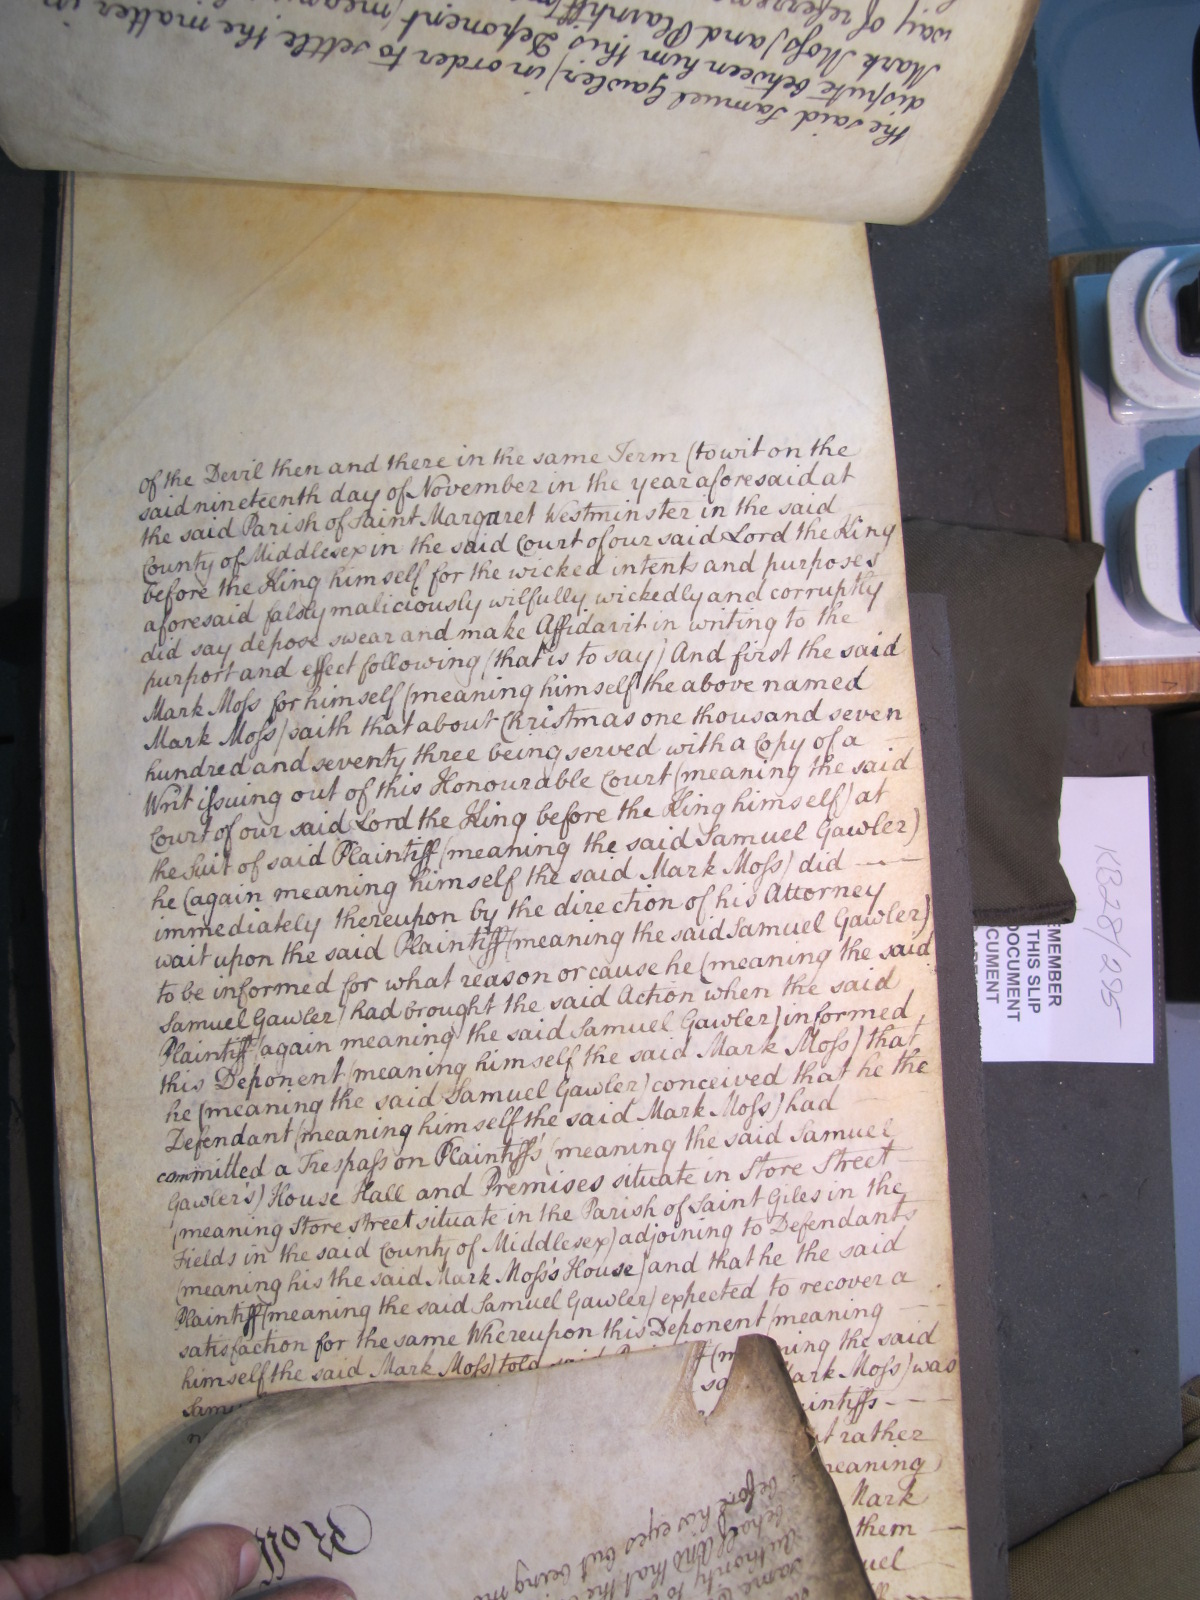 the said Samuel Gawler) in order to settle the matter in
dispute between him this Deponent (meaning
Mark Moſs) and Plaintiff
way of referrence
of the Devil then and there in the same Term (towit on the
said nineteenth day of November in the year aforesaid at
the said Parish of Saint Margaret Westminster in the said
County of Middlesex in the said Court of our said Lord the King
before the King himself for the wicked intents and purposes
aforesaid falsly maliciously wilfully wickedly and corruptly
did say depose swear and make Affidavit in writing to the
purport and effect following (that is to say) And first the said
Mark Moſs for himself (meaning himself the above named
Mark Moſs) saith that about Christmas one thousand seven
hundred and seventy three being served with a Copy of a
Writ iſsuing out of this Honourable Court (meaning the said
Court of our said Lord the King before the King himself) at
the Suit of said Plaintiff (meaning the said Samuel Gawler)
he (again meaning himself the said Mark Moſs) did
immediately thereupon by the direction of his Attorney
wait upon the said Plaintiff (meaning the said Samuel Gawler)
to be informed for what reason or cause he (meaning the said
Samuel Gawler) had brought the said Action when the said
Plaintiff (again meaning the said Samuel Gawler) informed
this Deponent (meaning himself the said Mark Moſs) that
he (meaning the said Samuel Gawler) conceived that he the
Defendant (meaning himself the said Mark Moſs) had
committed a Trespaſs on Plaintiff's (meaning the said Samuel
Gawler's) House Hall and Premises situate in Store Street
(meaning Store Street situate in the Parish of Saint Giles in the
Fields in the said County of Middlesex) adjoining to Defendants
(meaning his the said Mark Moſs's House) and that he the said
Plaintiff (meaning the said Samuel Gawler) expected to recover a
satisfaction for the same Whereupon this Deponent (meaning
himself the said Mark Moſs) told said
the said
Mark Moſs) was
rather
meaning
Mark
them
Roll
before his eyes but being
behalf And that the
Authority to
same
KB28/295
EMEMBER
THIS SLIP
DOCUMENT
CUMENT